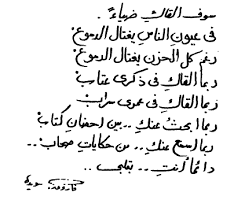 سوف القاك ضياءً.
في عيون الناس يغتال الدموع
رغم كل الحزن يغتال الدموع
ربما القاك في ذكرى عتاب
ربما القاك في عمري سراب
ربما ابحث عنك .. بين احضان كتاب
ربما اسمع عنك .. من حكايات صحاب ..
دائماً أنت .. بقلبي ..